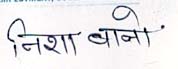 निशा बानो